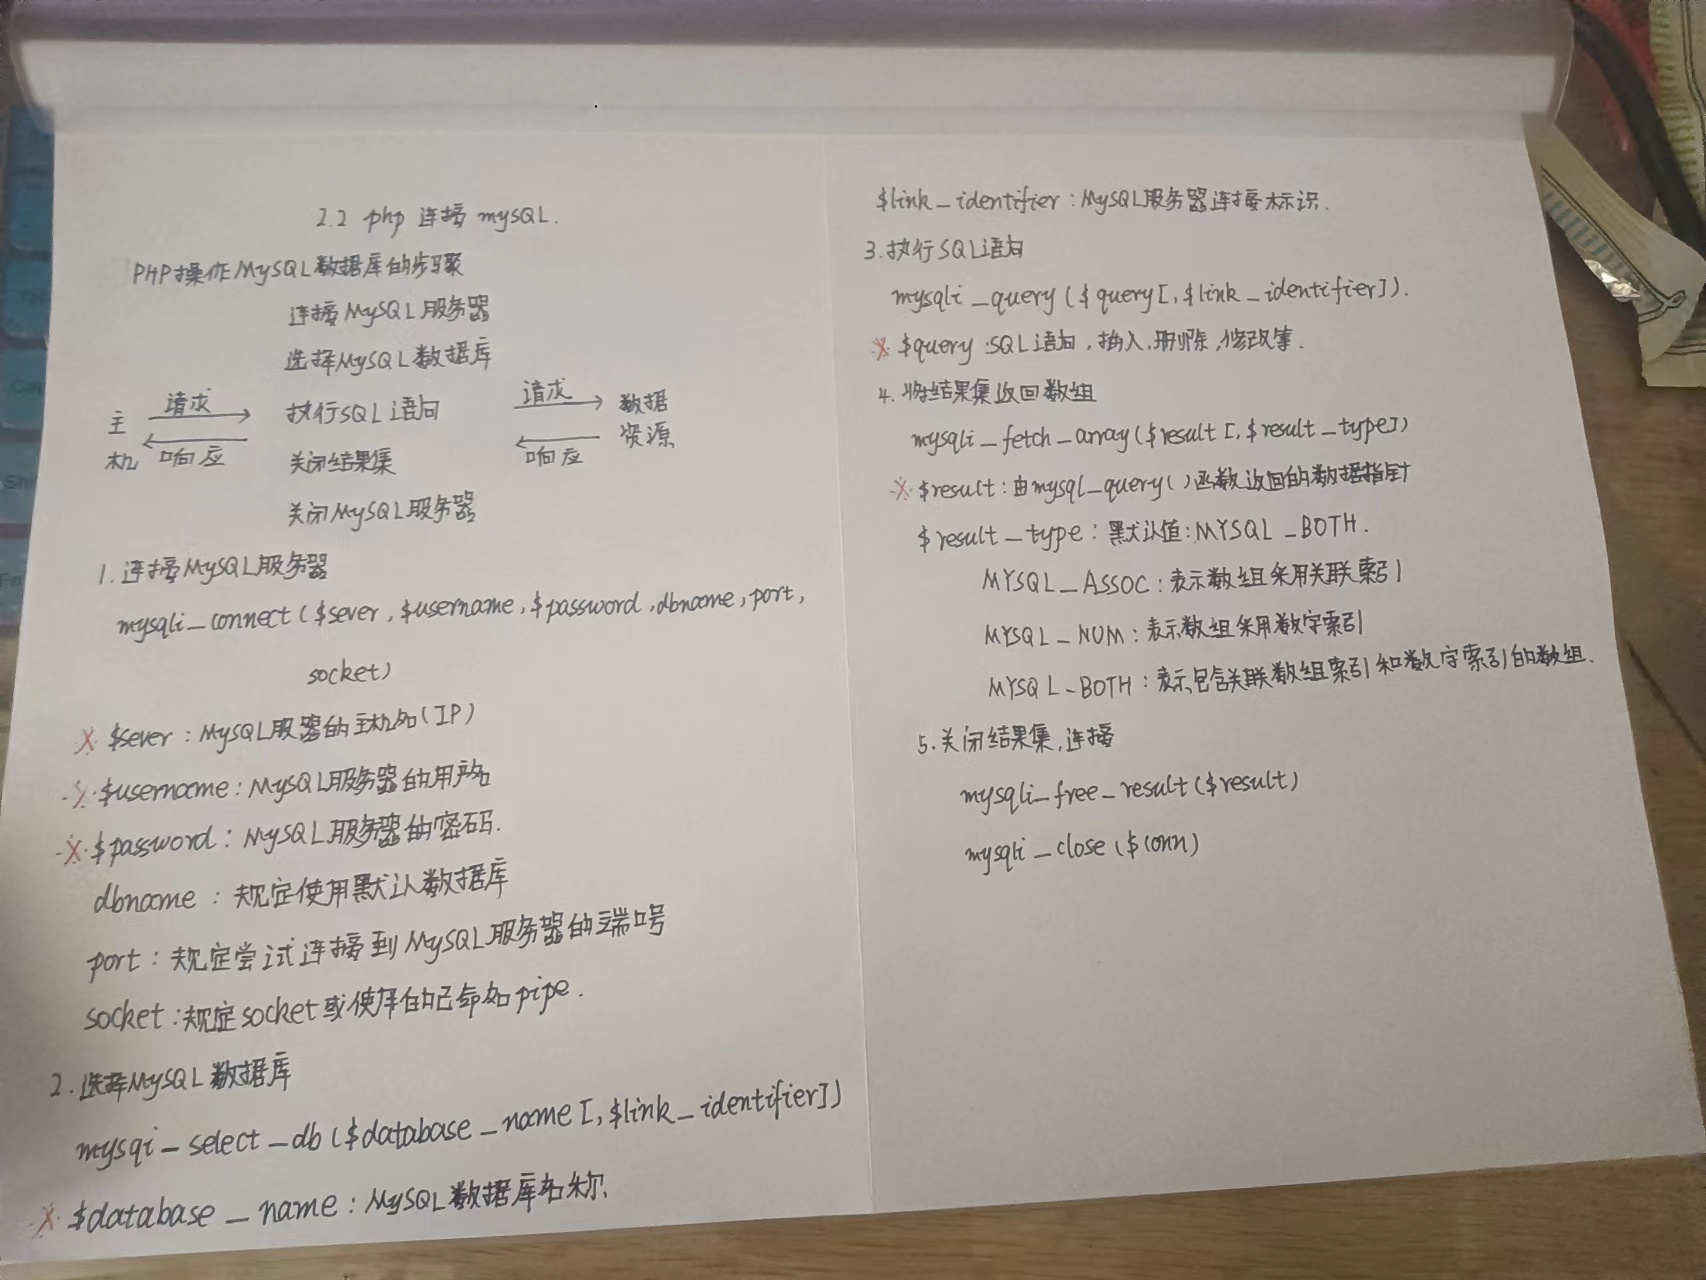 2.2 php 连接 mySQL.
PHP操作MySQL数据库的步骤
连接MySQL服务器
选择MySQL数据库
主机 请求 响应 执行SQL语句 请求 响应 数据资源
关闭结果集
关闭MySQL服务器
1.连接MySQL服务器
mysqli_connect($sever,$username,$password,dbname,port,
socket)
※ $sever:MySQL服器的主机名(IP)
※ $username:MySQL服务器的用户名
※ $password:MySQL服务器的密码.
dbname:规定使用默认数据库
port:规定尝试连接到MySQL服务器的端口号
socket:规定socket或使用的已命名pipe.
2.选择MySQL数据库
mysqi_select_db($database_name[,$link_identifier])
※ $database_name:MySQL数据库名称.
$link_identifier:MySQL服务器连接标识.
3.执行SQL语句
mysqli_query($query[,$link_identifier]).
※ $query:SQL语句,插入,删除,修改等.
4.将结果集返回数组
mysqli_fetch_array($result[,$result_type])
※ $result:由mysql_query()函数返回的数据指针
$result_type:默认值:MYSQL_BOTH.
MYSQL_ASSOC:表示数组采用关联索引
MYSQL_NUM:表示数组采用数字索引
MYSQL_BOTH:表示包含关联数组索引和数字索引的数组.
5.关闭结果集,连接
mysqli_free_result($result)
mysqli_close($conn)